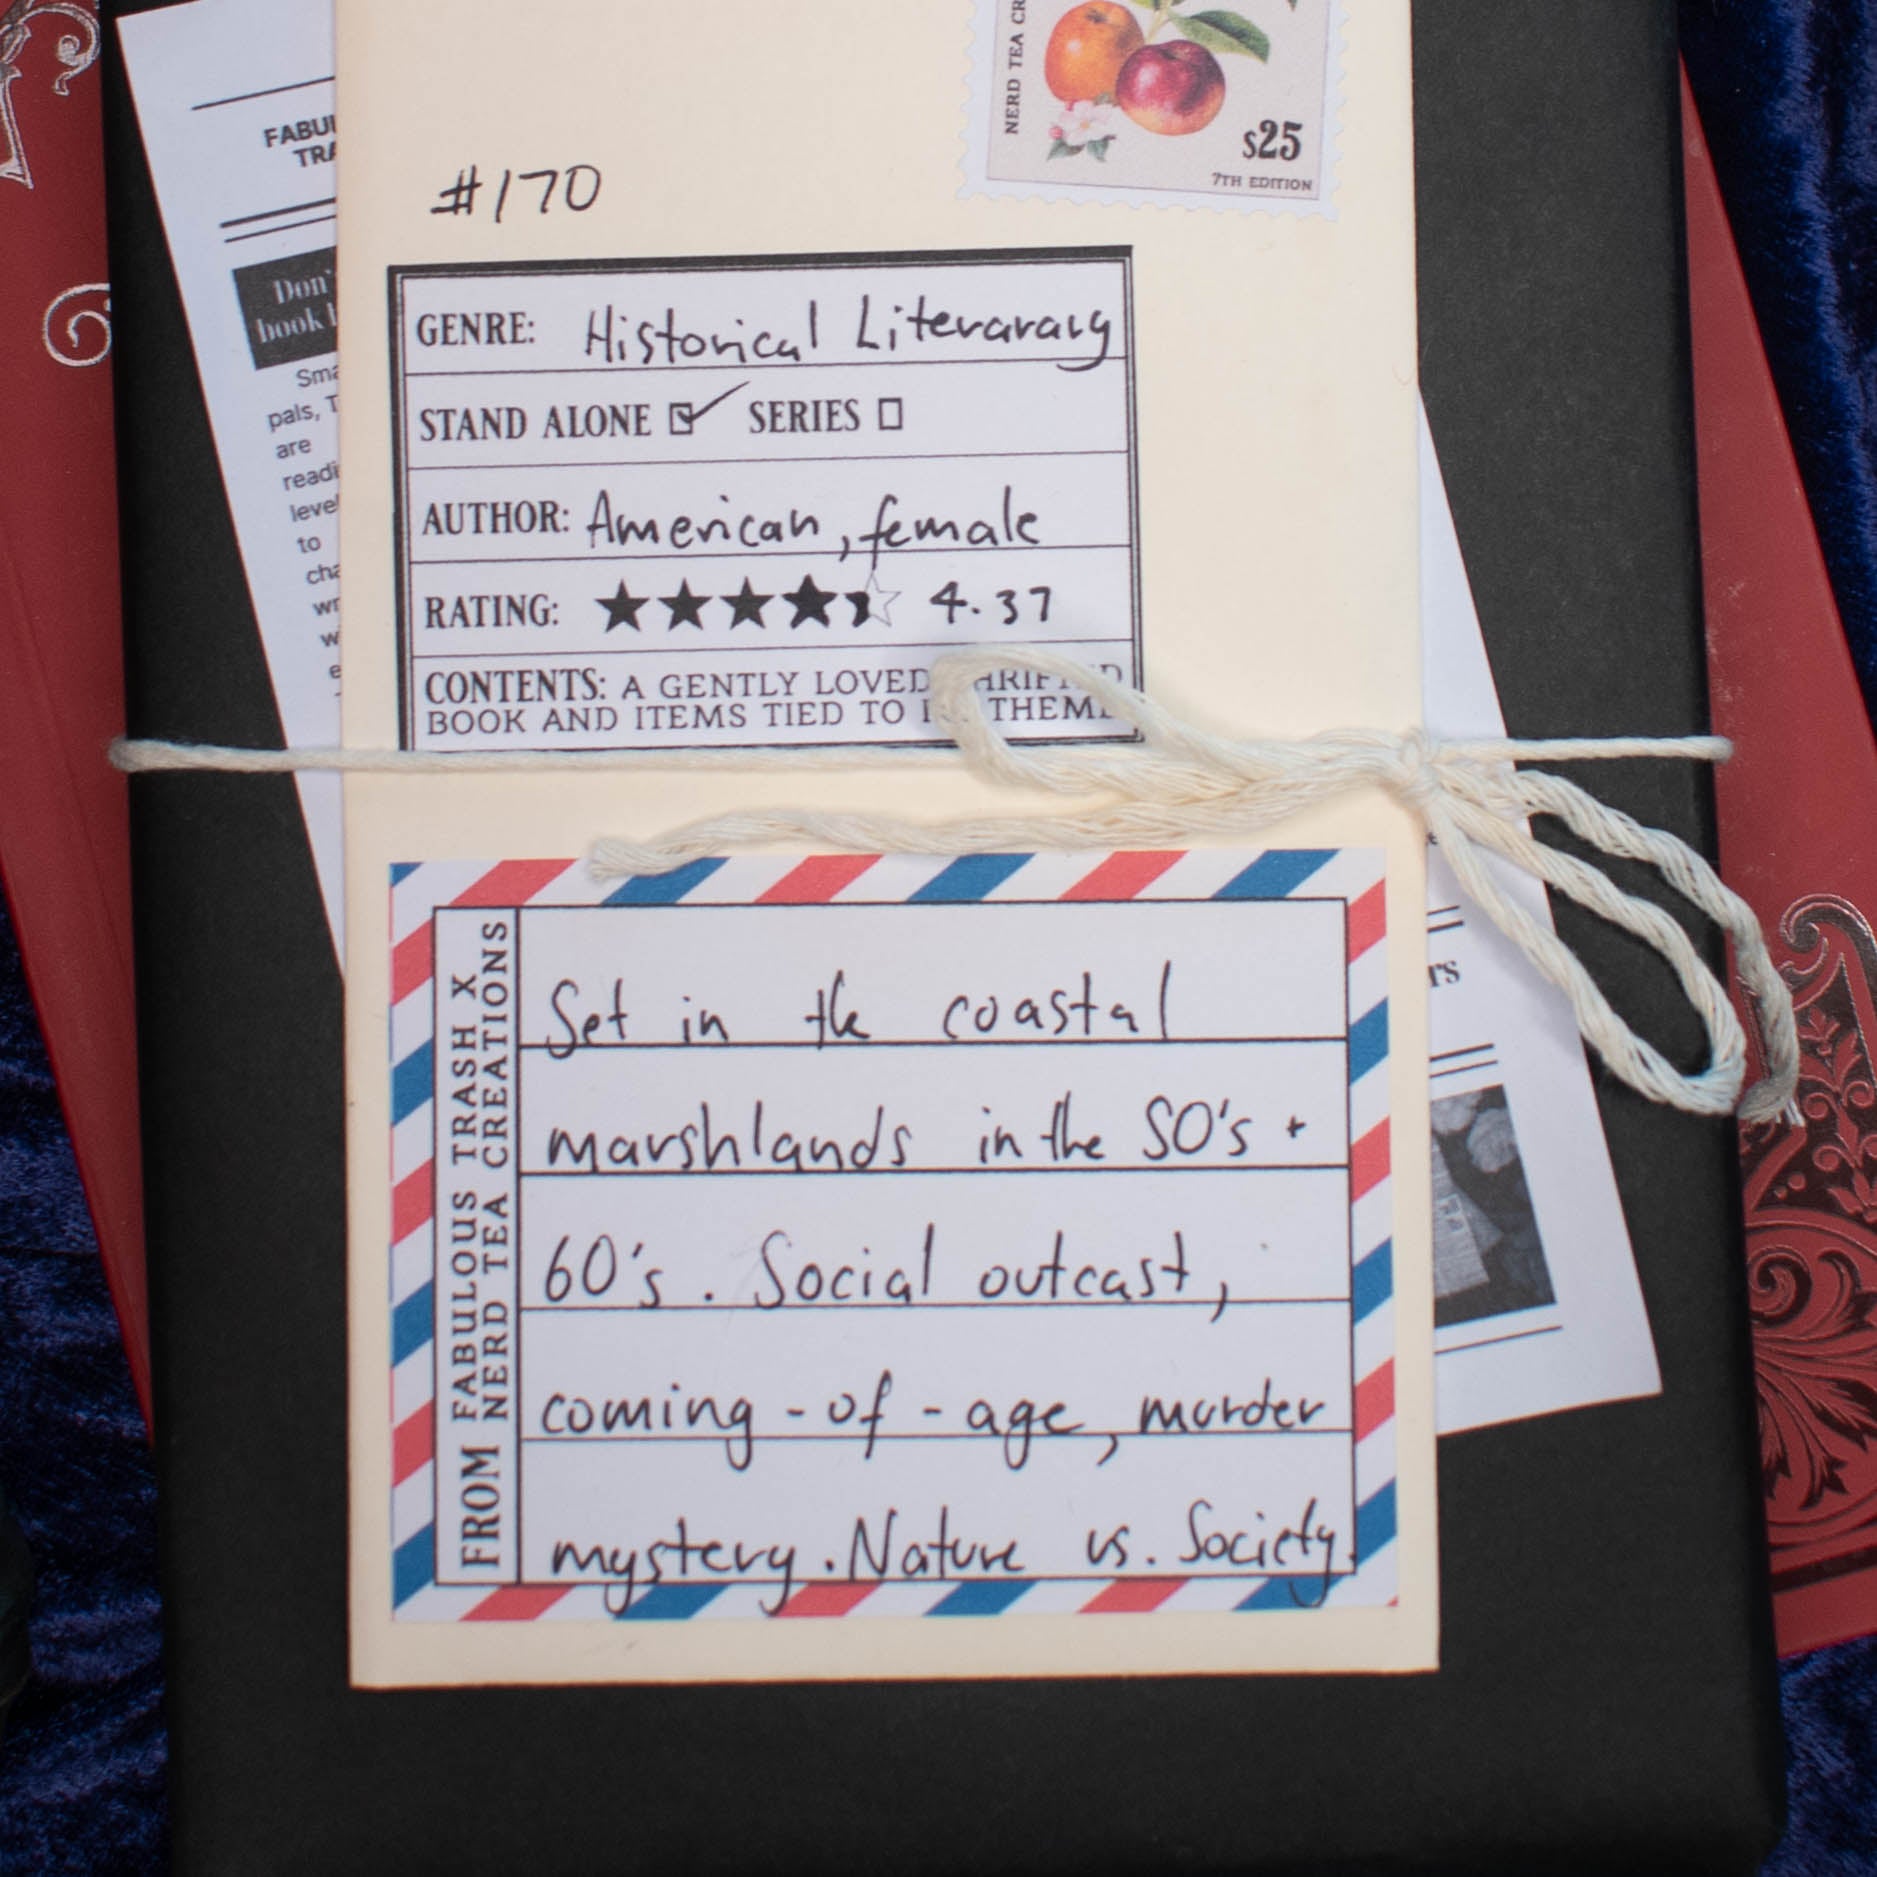 NERD TEA CR
$25
7TH EDITION
FABU
TRA
Don'
book
Sma
pals, T
are
readi
level
to
cha
wr
w
e
#170
GENRE: Historical Literarary
STAND ALONE ☑ SERIES ☐
AUTHOR: American, female
RATING: ★★★★ 4.37
CONTENTS: A GENTLY LOVED THRIFTED
BOOK AND ITEMS TIED TO THEME
FROM FABULOUS TRASH X
NERD TEA CREATIONS
Set in the coastal
marshlands in the 50's +
60's. Social outcast,
coming-of-age, murder
mystery. Nature vs. Society.
rs